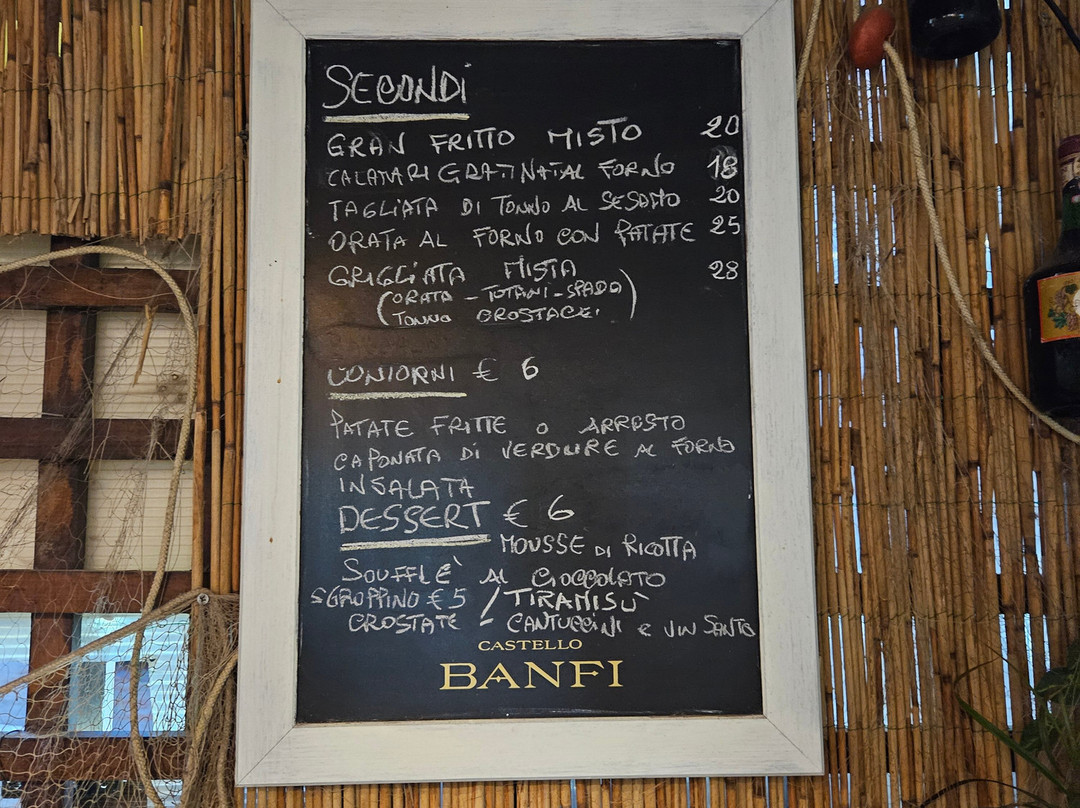 SECONDI
GRAN FRITTO MISTO 20
CALAMARI GRATINATI AL FORNO 18
TAGLIATA DI TONNO AL SESAMO 20
ORATA AL FORNO CON PATATE 25
GRIGLIATA MISTA 28
(ORATA - TOTANI - SPADA
TONNO CROSTACEI)
CONTORNI € 6
PATATE FRITTE O ARROSTO
CAPONATA DI VERDURE AL FORNO
INSALATA
DESSERT € 6
MOUSSE DI RICOTTA
SOUFFLE' AL CIOCCOLATO
SGROPPINO € 5 / TIRAMISU'
CROSTATE - CANTUCCINI E VIN SANTO
CASTELLO
BANFI